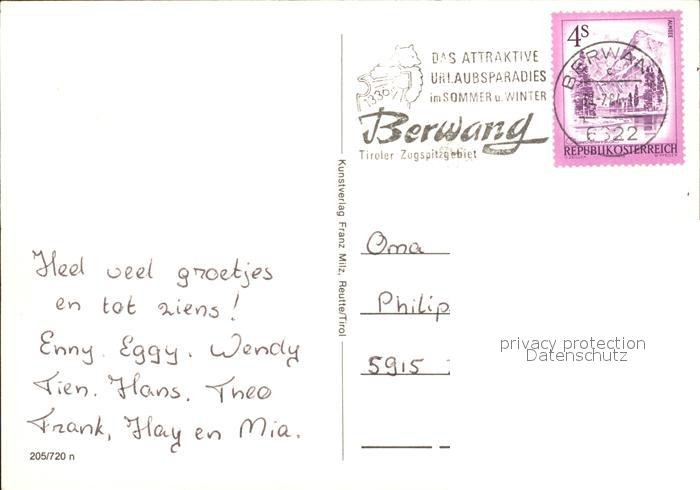 DAS ATTRAKTIVE
URLAUBSPARADIES
im SOMMER u. WINTER
1336
Berwang
Tiroler Zugspitzgebiet
4s
ALMSEE
BERWANG
6622
REPUBLIK ÖSTERREICH
Kunstverlag Franz Milz, Reutte/Tirol
Heel veel groetjes
en tot ziens!
Enny. Eggy. Wendy
Tien. Hans. Theo
Frank, Hay en Mia.
205/720 n
Oma
Philip
5915
privacy protection
Datenschutz